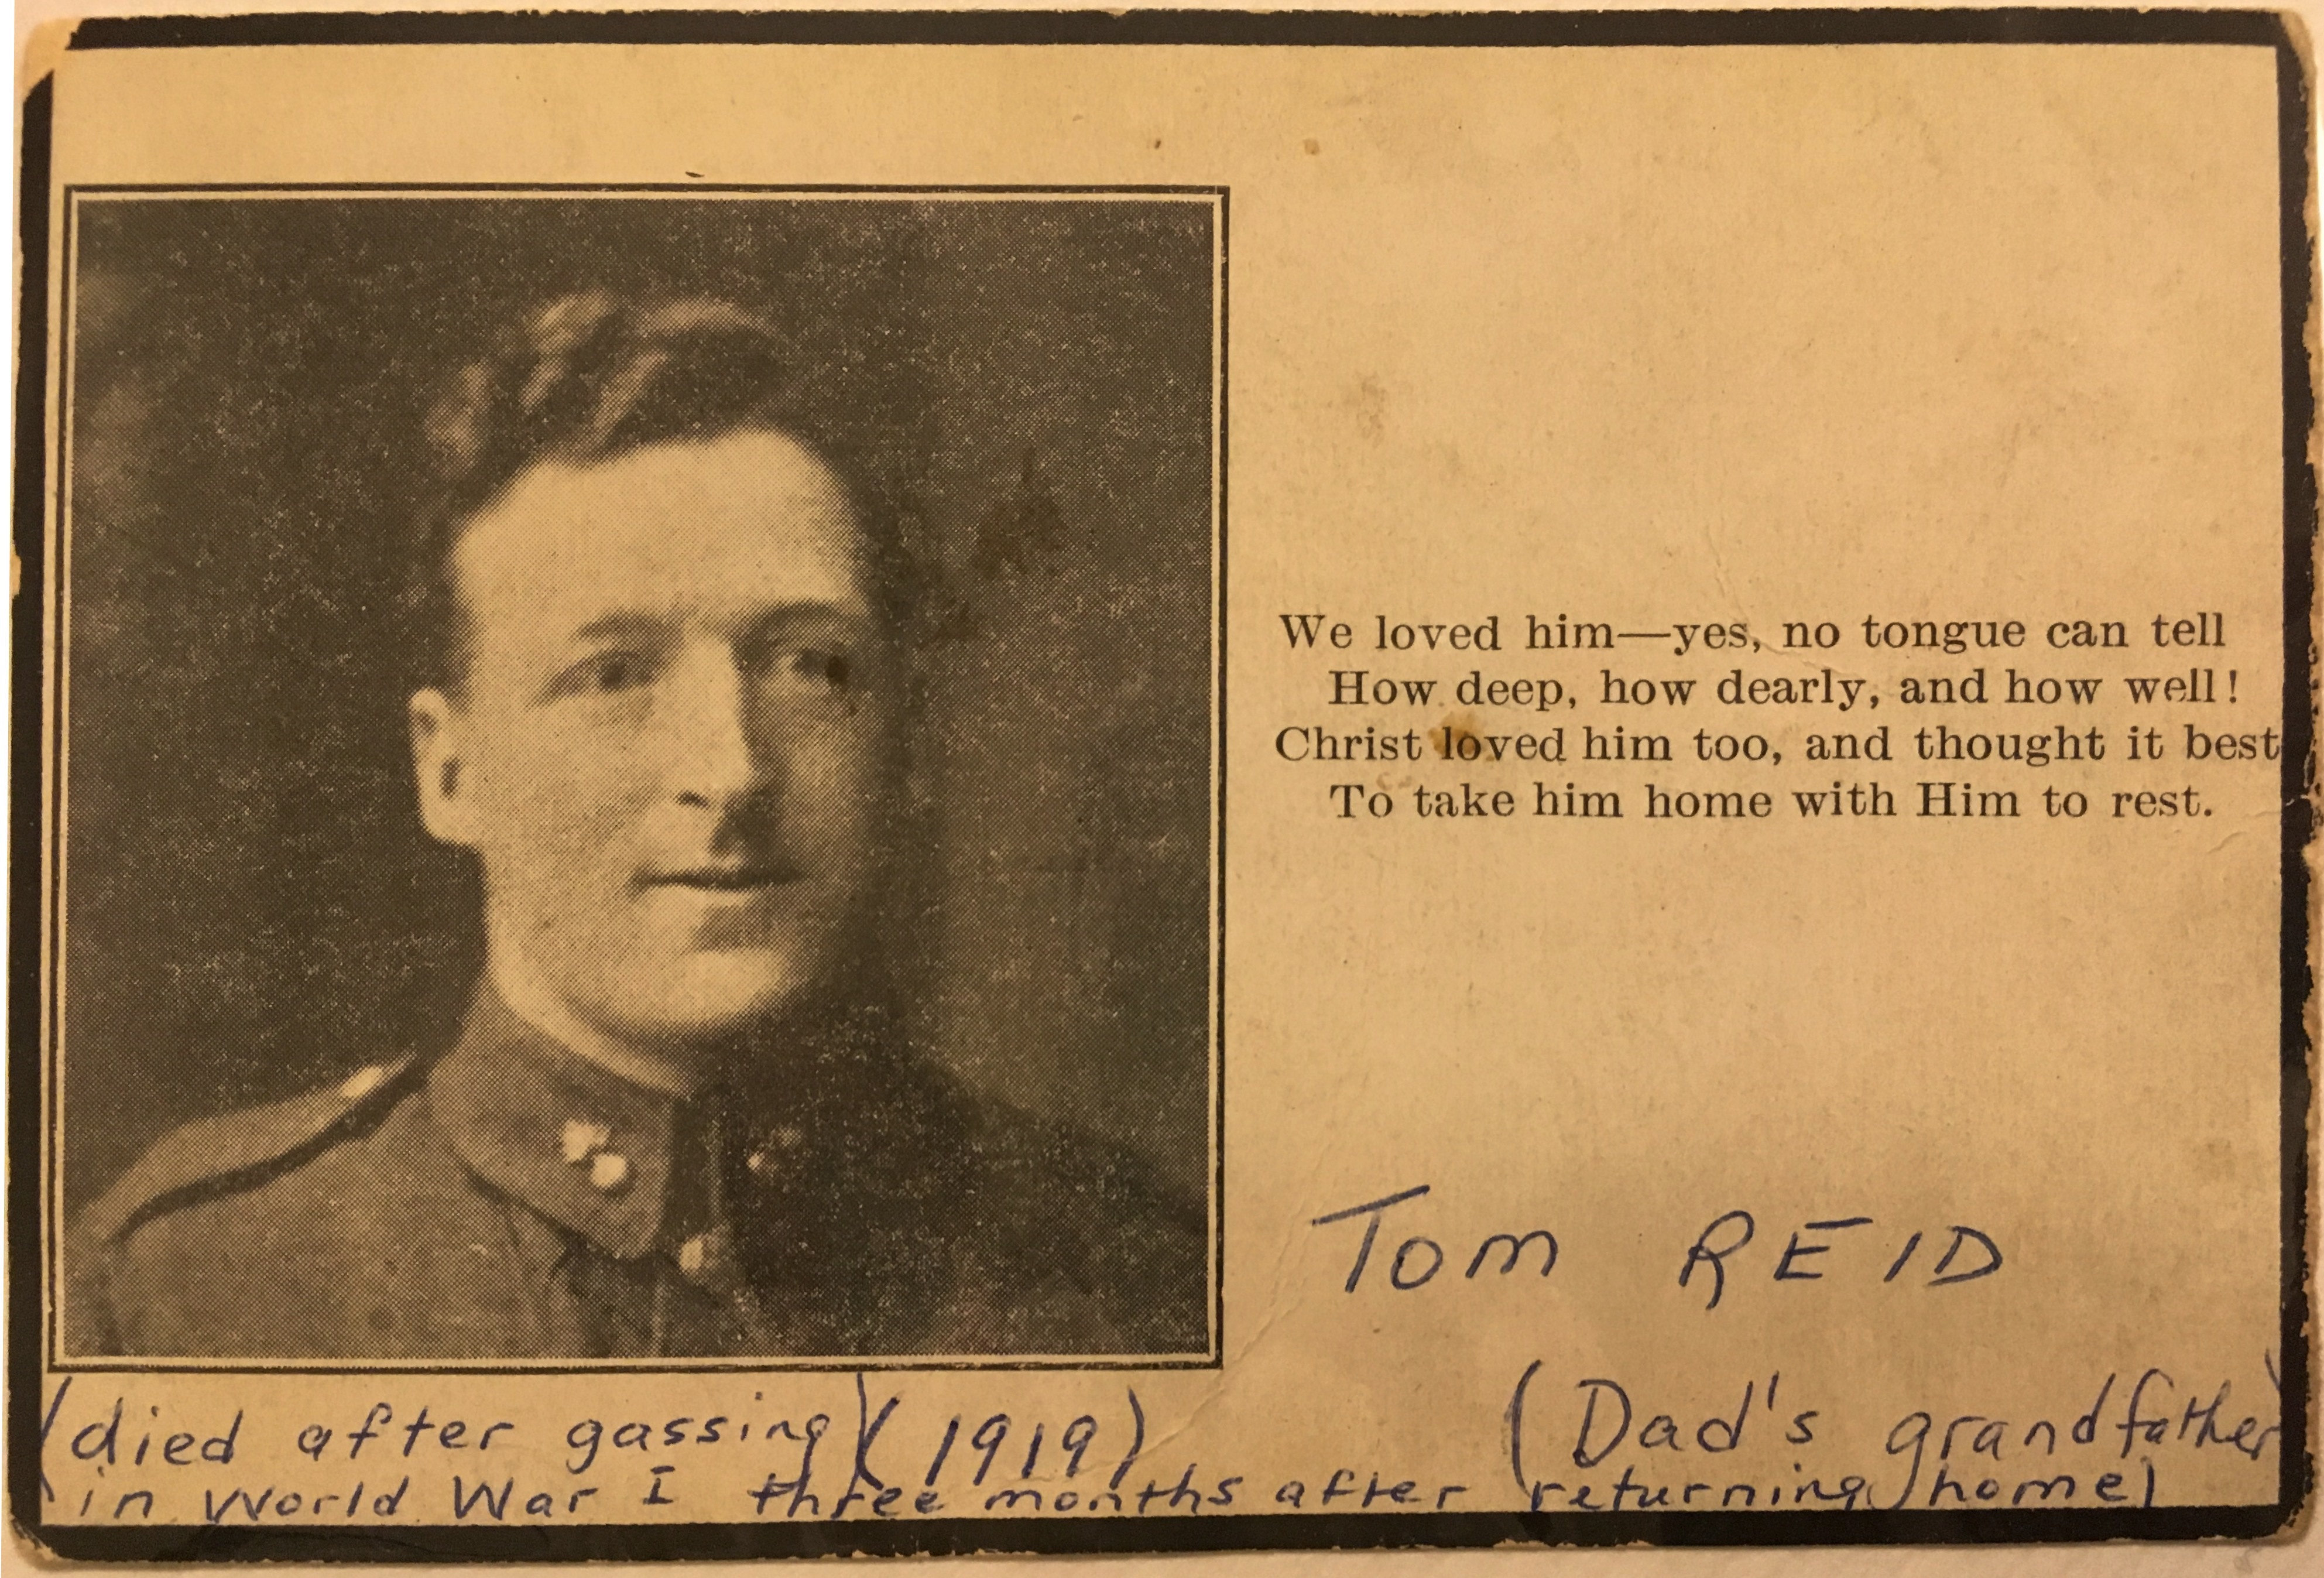 We loved him—yes, no tongue can tell
How deep, how dearly, and how well!
Christ loved him too, and thought it best
To take him home with Him to rest.
Tom REID
(died after gassing) (1919) (Dad's grandfather)
in World War I three months after returning home)